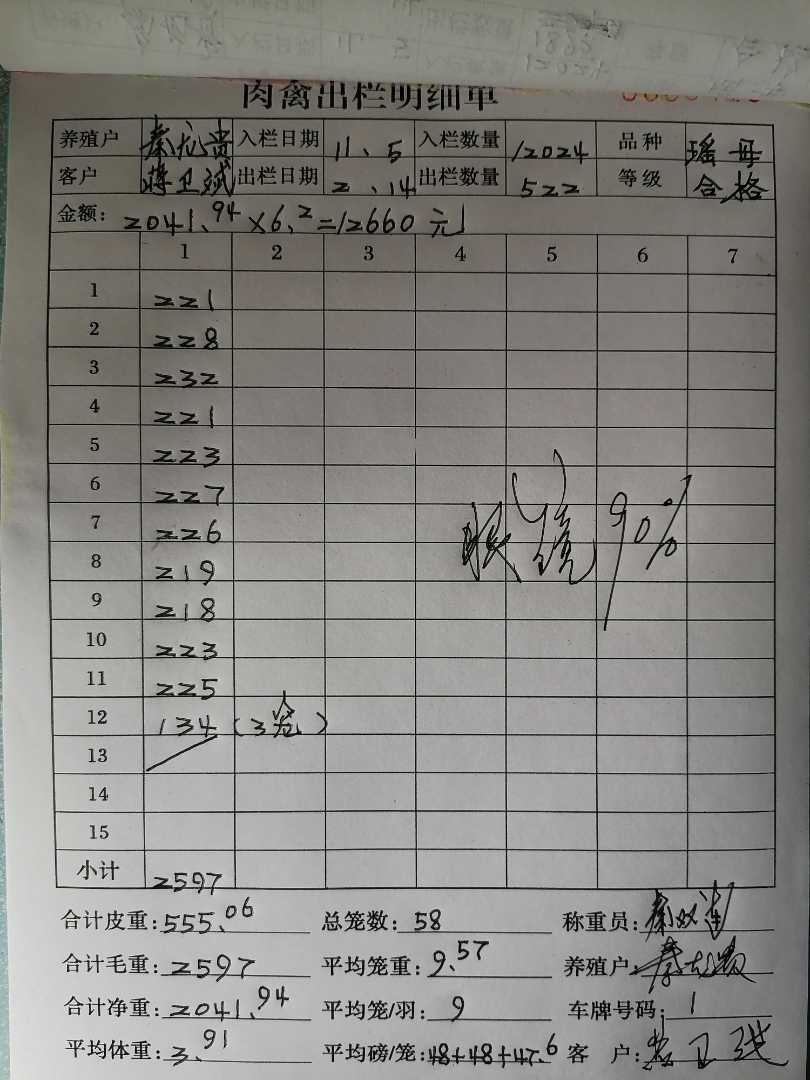 肉禽出栏明细单
养殖户 秦龙贵 入栏日期 11、5 入栏数量 12024 品种 瑶母
客户 蒋卫斌 出栏日期 2、14 出栏数量 522 等级 合格
金额: 2041.94×6.2=12660元
1 2 3 4 5 6 7
1 221
2 228
3 232
4 221
5 223
6 227
7 226
8 219
9 218
10 223
11 225
12 134(3笼)
13
14
15
小计 2597
90%
合计皮重: 555.06 总笼数: 58 称重员:
合计毛重: 2597 平均笼重: 9.57 养殖户: 秦龙贵
合计净重: 2041.94 平均笼/羽: 9 车牌号码: 1
平均体重: 3.91 平均磅/笼: 48+48+47.6 客 户: